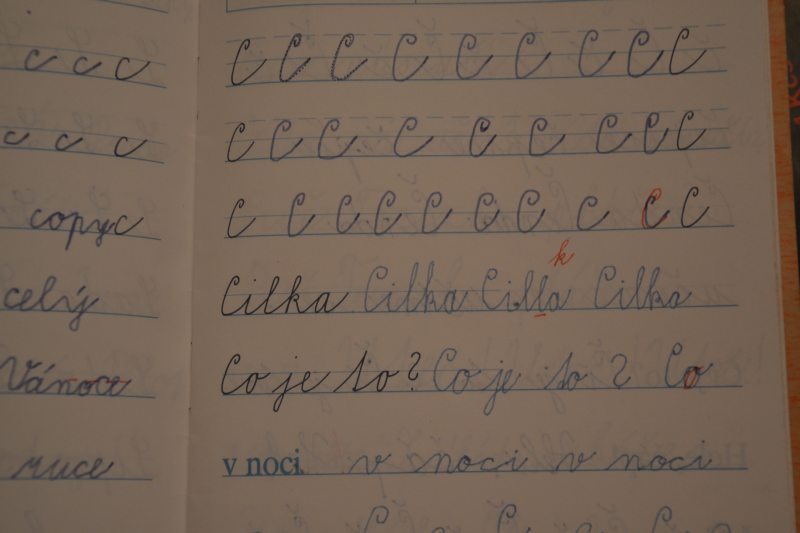 c c c
c c c
copyc
celý
Vánoce
ruce
C C C C C C C C C
C C C C C C C C C
C C C C C C C C C C
k
Cilka Cilka Cilla Cilka
Co je to? Co je to ? Co
v noci v noci v noci